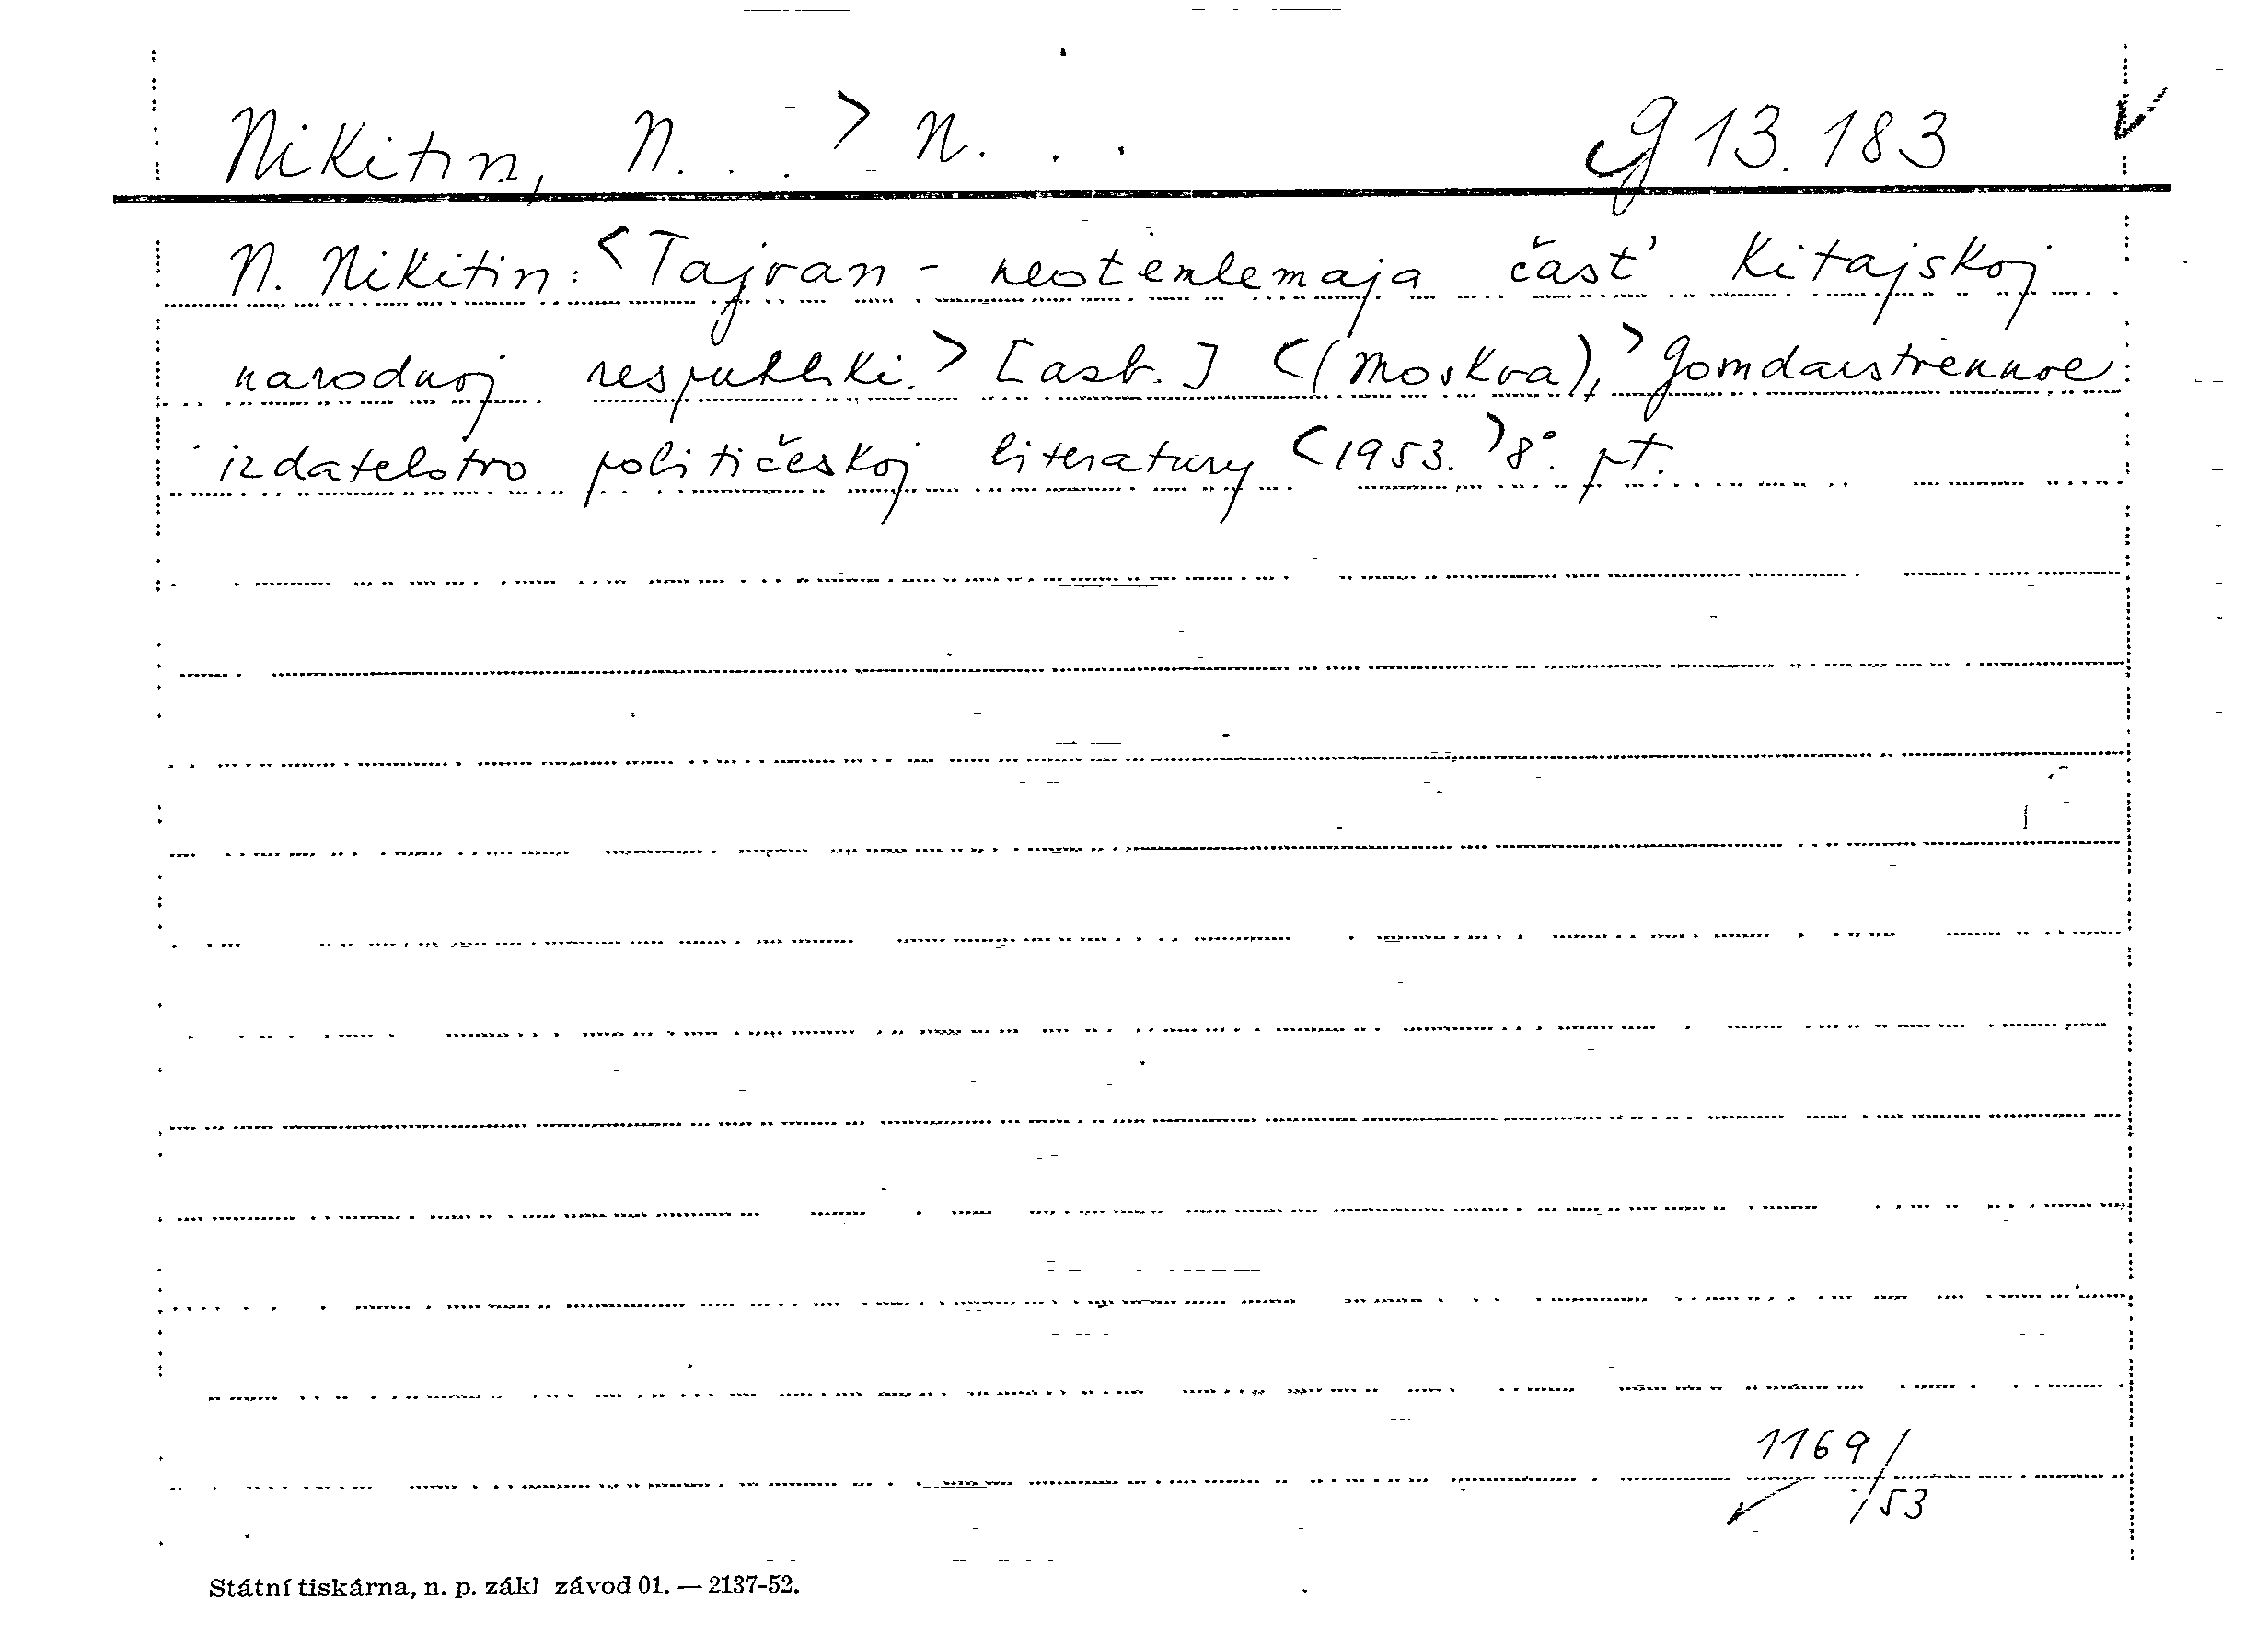 Nikitin, N. . . > N. . . g 13.183
N. Nikitin: <Tajvan - neotemlemaja část' Kitajskoj
narodnoj respubliki.> [asb.] <(Moskva),> Gosudarstvennoe
izdatelstvo političeskoj literatury <1953.> 8°. pt.
1169/
/53
Státní tiskárna, n. p. zákl závod 01. — 2137-52.